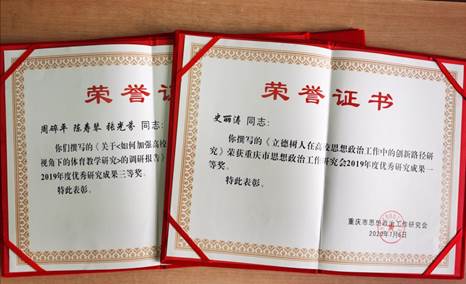 荣誉证
周碎平 陈寿琴 张光蓉 同志:
你们撰写的《关于<如何加强高校
视角下的体育教学研究>的调研报告》
2019年度优秀研究成果三等奖。
特此表彰。
荣誉证书
史丽涛 同志:
你们撰写的《立德树人在高校思想政治工作中的创新路径研
究》荣获重庆市思想政治工作研究会2019年度优秀研究成果一
等奖。
特此表彰。
重庆市思想政治工作研究会
2020年1月6日